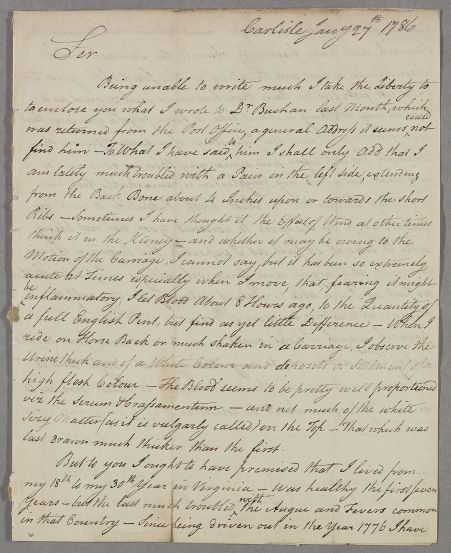 Carlisle Jany 27th 1786
Sir
Being unable to write much I take the Liberty to
to enclose you what I wrote to Dr Buchan last Month, which
was returned from the Post Office, a general Address it seems, could not
find him – To What I have said to him I shall only add that I
am lately much troubled with a Pain in the left side, extending
from the Back Bone about 4 Inches upon or towards the short
Ribs – sometimes I have thought it the Effect of Wind at other times
think it in the Kidney – and whether it may be owing to the
Motion of the Carriage, I cannot say, but it has been so extremely
acute at Times especially when I move, that fearing it might
be Inflammatory, I let Blood About 8 Hours ago, to the Quantity of
a full English Pint, but find as yet little Difference – When I
ride on Horse Back or much shaken in a Carriage, I observe the
Urine thick and of a White Colour and deposits a Sediment of a
high flesh Colour – The Blood seems to be pretty well proportioned
viz the Serum & Crassamentum – and not much of the white
Sizey Matter (as it is vulgarly called) on the Top – that which was
last drawn much thicker than the first.
But to you I ought to have premised that I lived from
my 18th to my 30th Year in Virginia – Was healthy the first seven
Years – but the last much troubled with the Augue and Fevers common
in that Country – Since being driven out in the Year 1776 I have